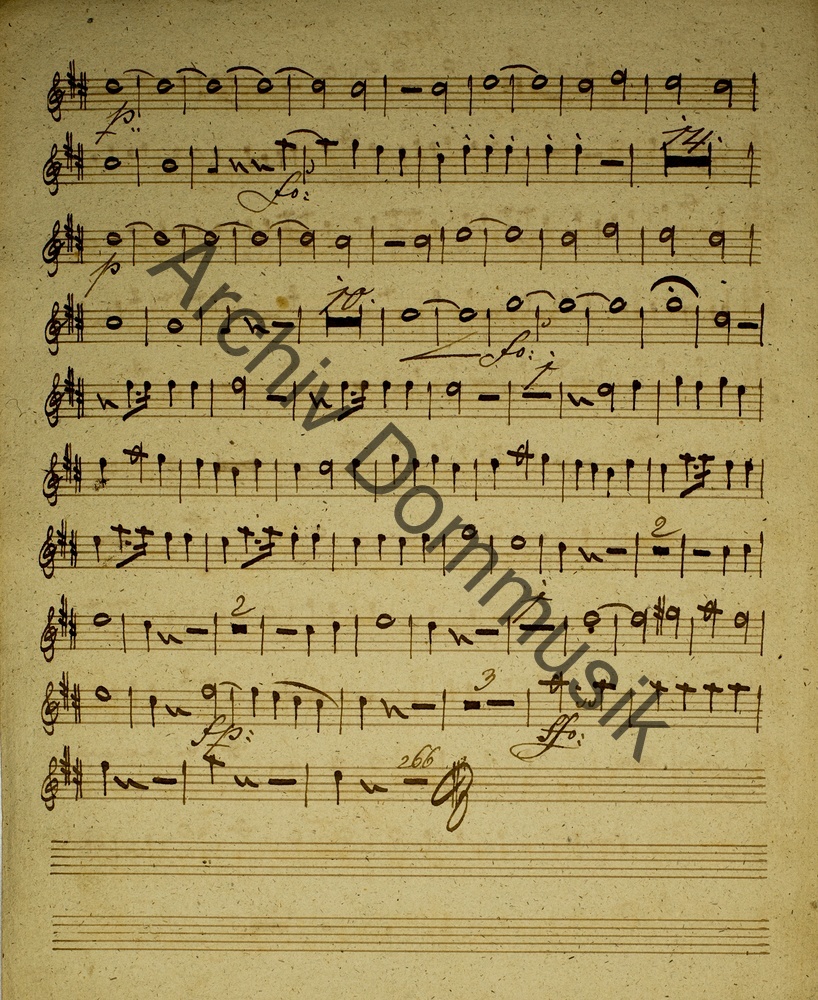 p:
14.
fo:
p
10.
fo:
1
2
2
1
3
fp:
ffo:
266
Archiv Dommusik